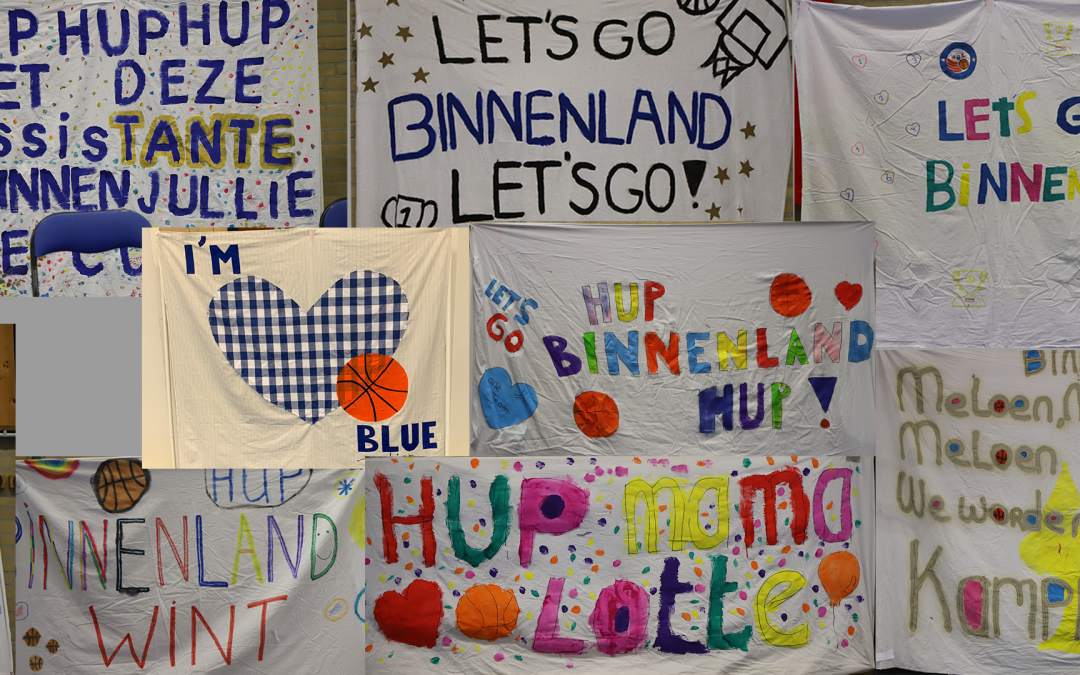 P HUP HUP
ET DEZE
ssisTANTE
INNEN JULLIE
LET'S GO
BINNENLAND
LET'S GO!
1
LETS G
BINNEN
I'M
BLUE
LET'S
GO
HUP
BINNENLAND
HUP!
one
team
BIN
Meloen, M
Meloen
We worden
Kamp
HUP
BINNENLAND
WINT
HUP mama
Lotte